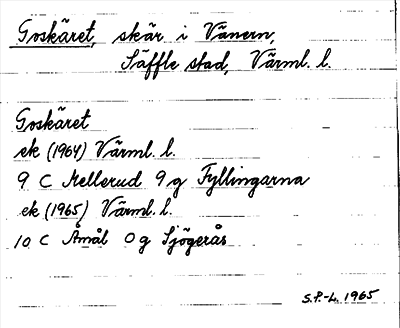 Goskäret, skär i Vänern,
Säffle stad, Värml. l.
Goskäret
ek (1964) Värml. l.
9 C Mellerud 9 g Fyllingarna
ek (1965) Värml. l.
10 C Åmål 0 g Sjögerås
S.P.-L. 1965